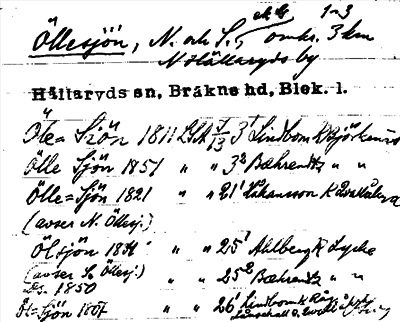 Öllesjön, N. och S., omkr. 3 km
N Hällaryds by
Hällaryds sn, Bräkne hd, Blek. l.
Öle= Sjön 1811 LSA 3¹ Lindbom K Björkenäs
Ölle Sjön 1857 " " 3² Bæhrentz " "
Ölle=Sjön 1821 " " 21¹ Håkansson K
(avser N. Öllesj.)
Ölsjön 1836 " " 25¹ Ahlberg K Lycke
(avser S. Öllesj.)
Ds. 1850 " " 25² Bæhrentz " "
Öl=Sjön 1807 " " 26¹ Lindbom K